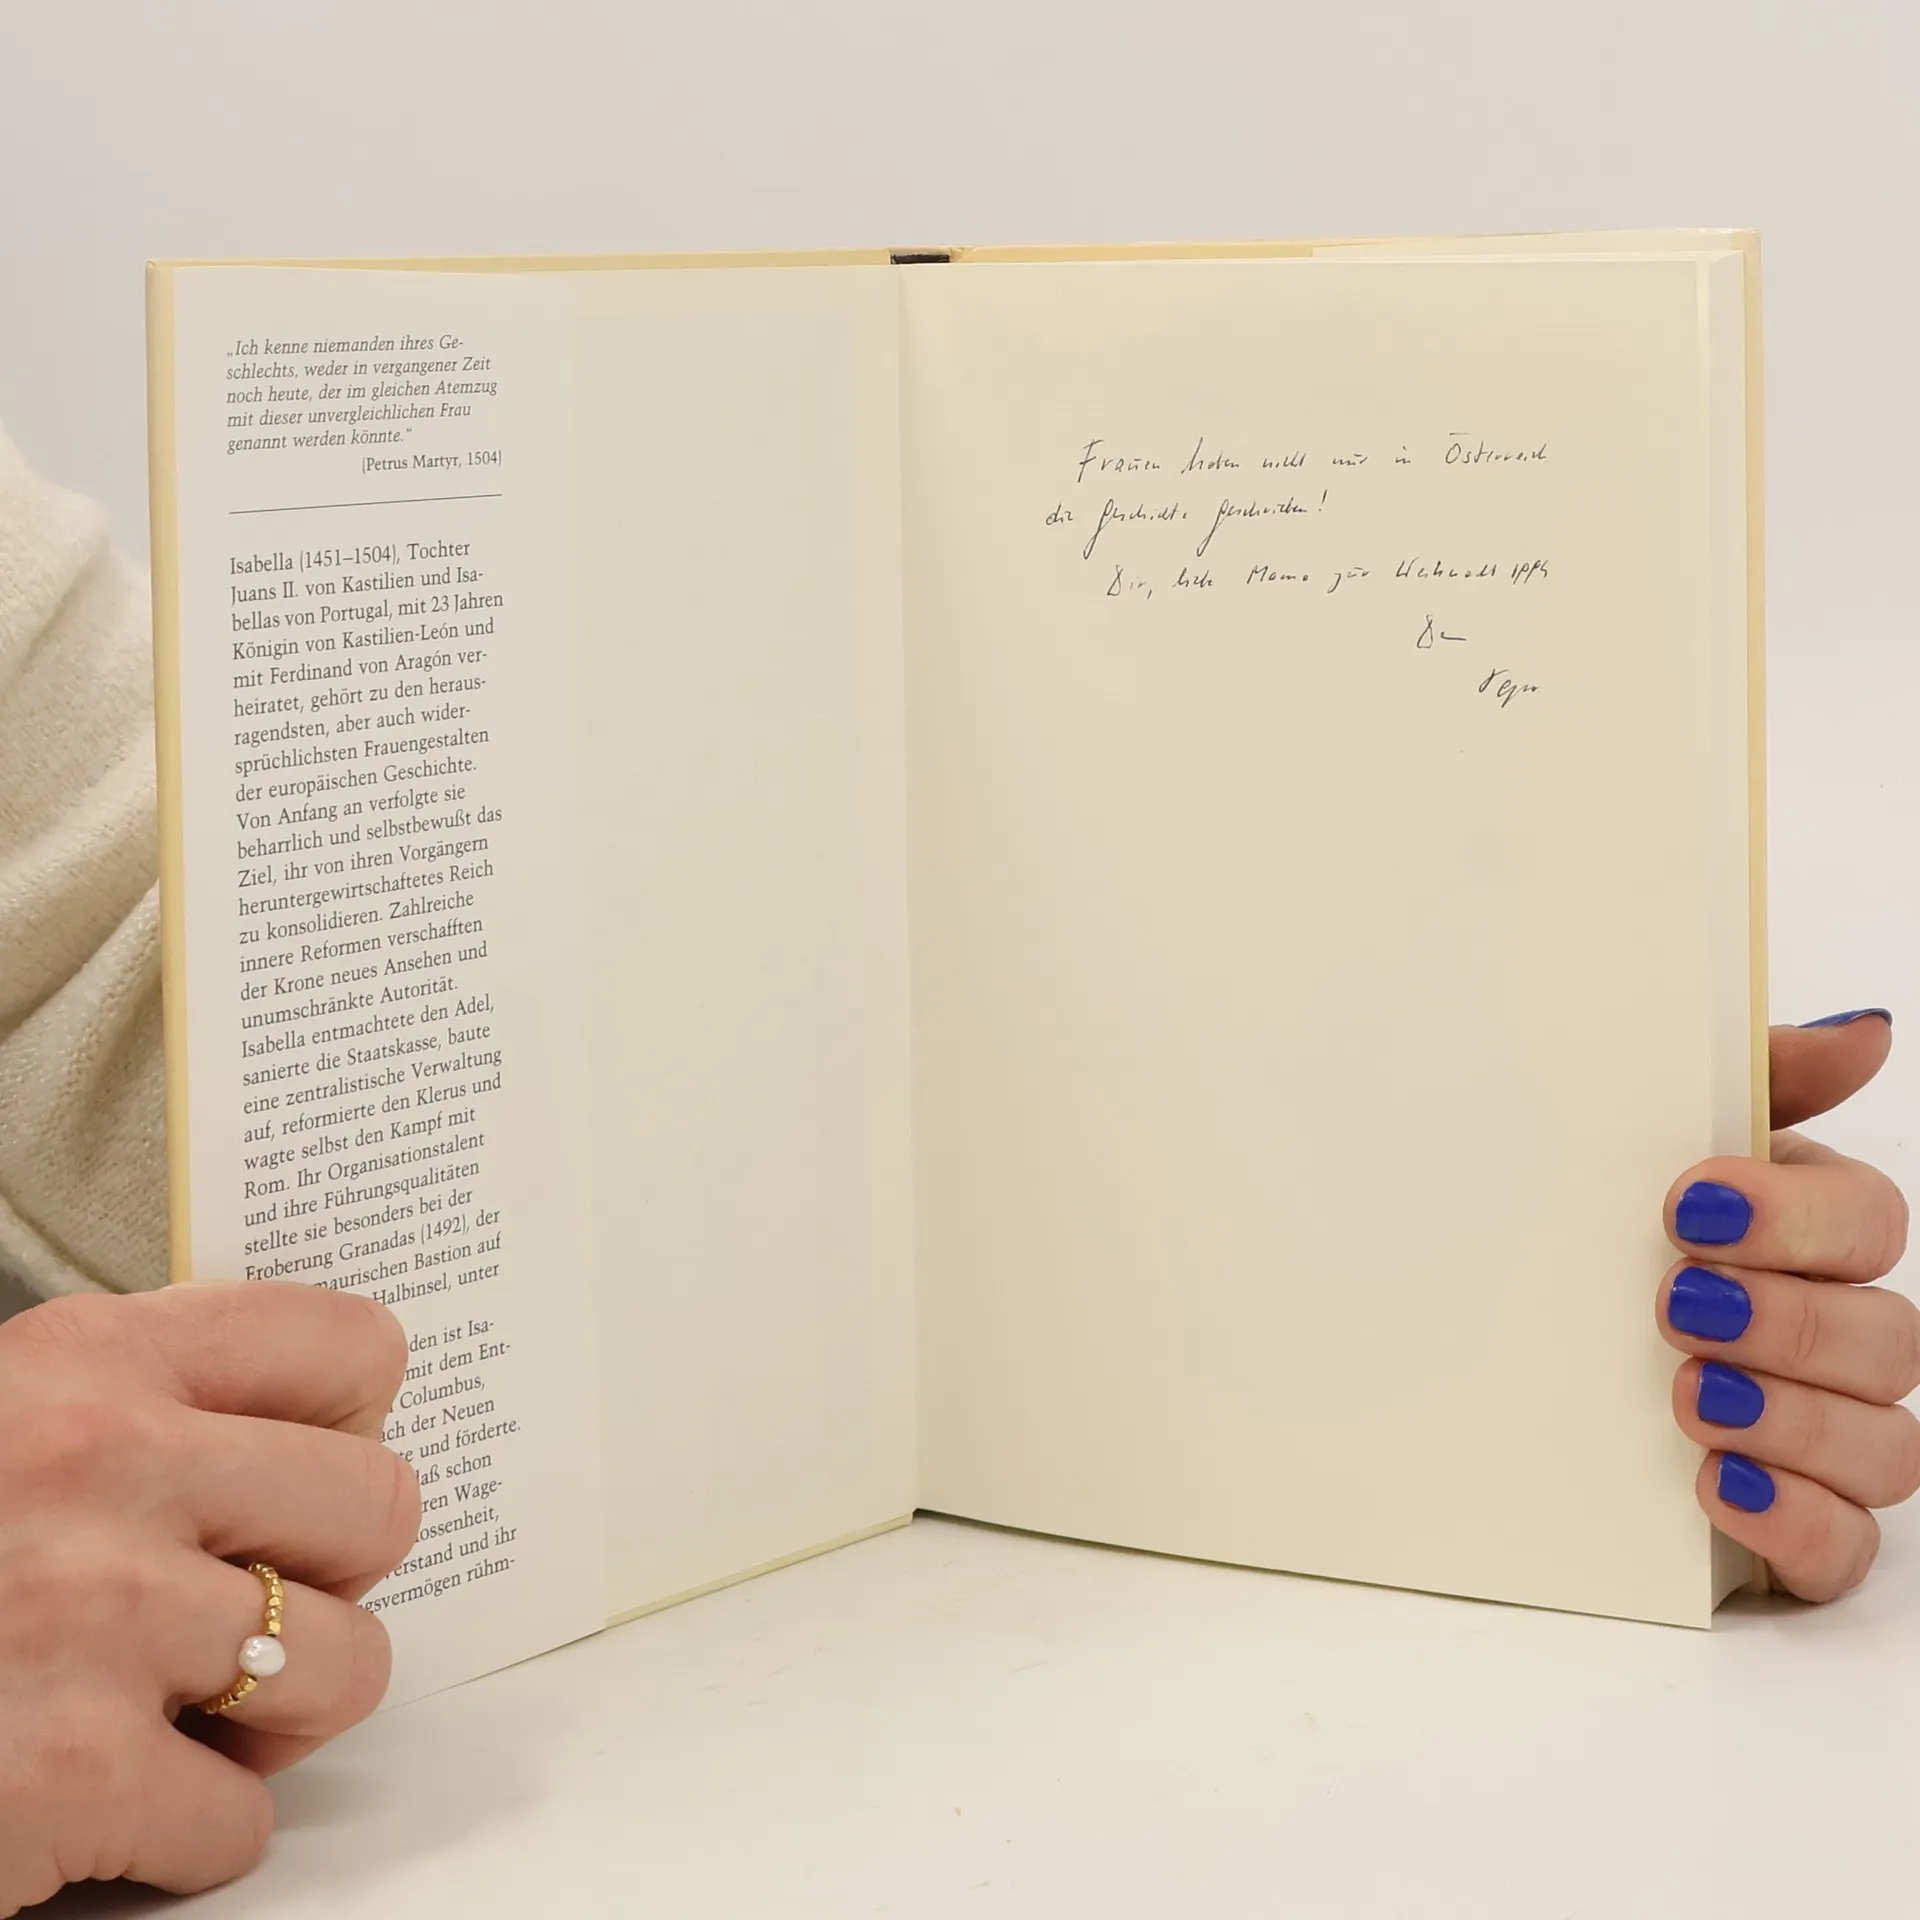 „Ich kenne niemanden ihres Ge-
schlechts, weder in vergangener Zeit
noch heute, der im gleichen Atemzug
mit dieser unvergleichlichen Frau
genannt werden könnte.“
(Petrus Martyr, 1504)
Isabella (1451–1504), Tochter
Juans II. von Kastilien und Isa-
bellas von Portugal, mit 23 Jahren
Königin von Kastilien-León und
mit Ferdinand von Aragón ver-
heiratet, gehört zu den heraus-
ragendsten, aber auch wider-
sprüchlichsten Frauengestalten
der europäischen Geschichte.
Von Anfang an verfolgte sie
beharrlich und selbstbewußt das
Ziel, ihr von ihren Vorgängern
heruntergewirtschaftetes Reich
zu konsolidieren. Zahlreiche
innere Reformen verschafften
der Krone neues Ansehen und
unumschränkte Autorität.
Isabella entmachtete den Adel,
sanierte die Staatskasse, baute
eine zentralistische Verwaltung
auf, reformierte den Klerus und
wagte selbst den Kampf mit
Rom. Ihr Organisationstalent
und ihre Führungsqualitäten
stellte sie besonders bei der
Eroberung Granadas (1492), der
maurischen Bastion auf
Halbinsel, unter
den ist Isa-
mit dem Ent-
Columbus,
ach der Neuen
te und förderte.
daß schon
ren Wage-
ossenheit,
verstand und ihr
gsvermögen rühm-
Frauen haben nicht nur in Österreich
die Geschichte geschrieben!
Dir, liebe Mama zur Weihnacht 1994